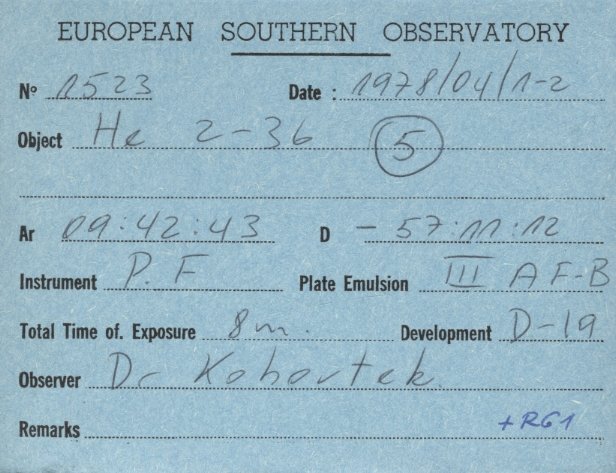 EUROPEAN SOUTHERN OBSERVATORY
Nº 1523 Date : 1978/04/1-2
Object He 2-36 5
Ar 09:42:43 D -57:11:12
Instrument P.F Plate Emulsion III A F-B
Total Time of. Exposure 8m. Development D-19
Observer Dr Kohoutek
Remarks +RG1